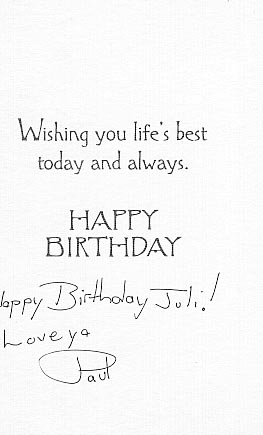 Wishing you life's best
today and always.
HAPPY
BIRTHDAY
Happy Birthday Juli!
Love ya
Paul